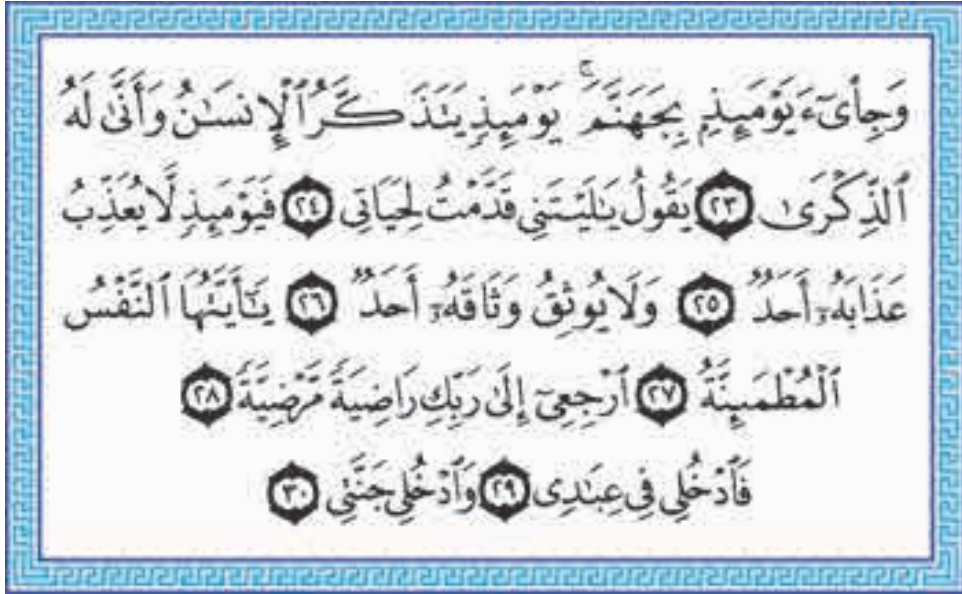 وَجِاْىٓءَ يَوْمَئِذٍۭ بِجَهَنَّمَ ۚ يَوْمَئِذٍ يَتَذَكَّرُ ٱلْإِنسَـٰنُ وَأَنَّىٰ لَهُ
ٱلذِّكْرَىٰ ٢٣ يَقُولُ يَـٰلَيْتَنِى قَدَّمْتُ لِحَيَاتِى ٢٤ فَيَوْمَئِذٍ لَّا يُعَذِّبُ
عَذَابَهُۥٓ أَحَدٌ ٢٥ وَلَا يُوثِقُ وَثَاقَهُۥٓ أَحَدٌ ٢٦ يَـٰٓأَيَّتُهَا ٱلنَّفْسُ
ٱلْمُطْمَئِنَّةُ ٢٧ ٱرْجِعِىٓ إِلَىٰ رَبِّكِ رَاضِيَةً مَّرْضِيَّةً ٢٨
فَٱدْخُلِى فِى عِبَـٰدِى ٢٩ وَٱدْخُلِى جَنَّتِى ٣٠